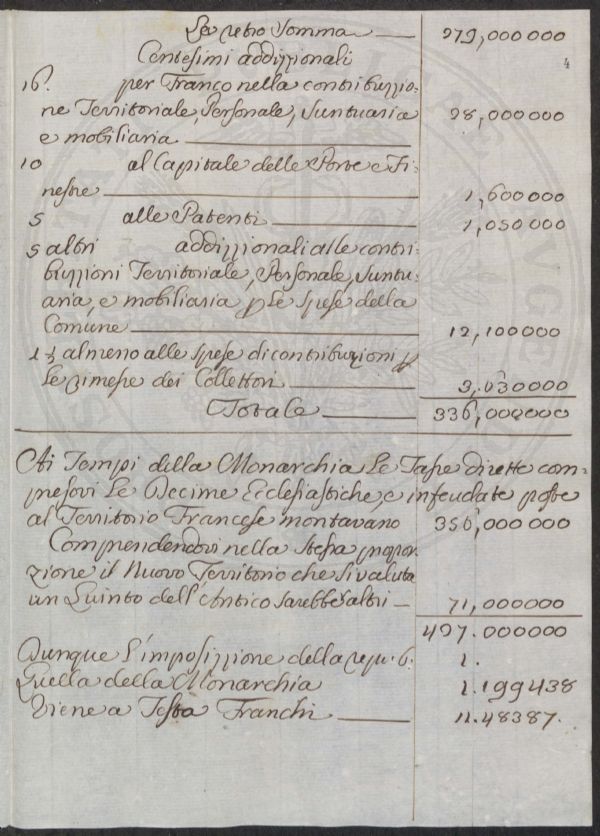 La retro Somma 279,000000
4
Centesimi addizzionali
16. per Franco nella contribuzzio-
ne Territoriale, Personale, Suntuaria 28,000000
e mobiliaria
10 al Capitale delle Porte e Fi-
nestre 1,600000
5 alle Patenti 1,050000
5 altri addizzionali alle contri-
buzzioni Territoriale, Personale, Suntu-
aria, e mobiliaria p Le spese della
Comune 12,100000
1 1/2 almeno alle spese di contribuzioni p
Le rimesse dei Collettori 3,030000
Totale 336,000000
Ai Tempi della Monarchia Le Tasse dirette com=
presovi Le Decime Ecclesiastiche, e infeudate poste
al Territorio Francese montavano 356,000000
Comprendendovi nella stessa propor-
zione il Nuovo Territorio che si valuta
un Quinto dell'Antico sarebbe altri 71,000000
427.000000
Dunque L'imposizzione della repu.b. 1.
Quella della Monarchia 1.199438
Viene a Testa Franchi 11.48387.